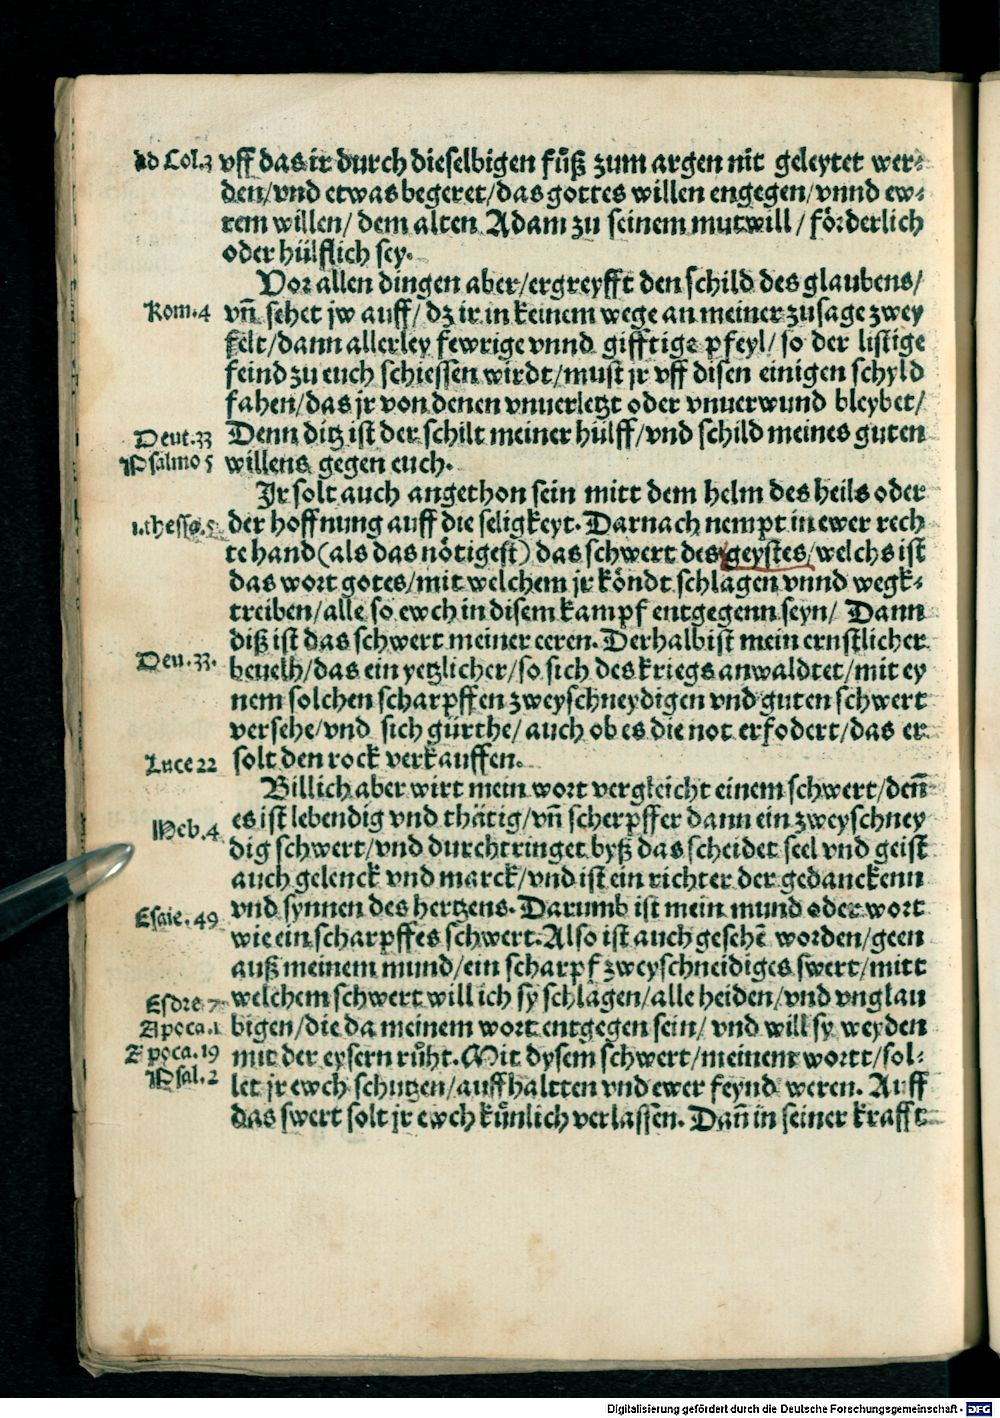 ad Col.3 vff das ir durch dieselbigen fuͤß zum argen nit geleytet wer⸗
den/vnd etwas begeret/das gottes willen engegen/vnnd ew⸗
rem willen/ dem alten Adam zu seinem mutwill/ foͤrderlich
oder huͤlfflich sey.
Vor allen dingen aber/ergreyfft den schild des glaubens/
Rom.4 vn̄ sehet jw auff/ dz ir in keinem wege an meiner zusage zwey
felt/dann allerley fewrige vnnd gifftige pfeyl/ so der listige
feind zu euch schiessen wirdt/must jr vff disen einigen schyld
fahen/das jr von denen vnuerletzt oder vnuerwund bleybet/
Deut.33 Denn ditz ist der schilt meiner huͤlff/vnd schild meines guten
Psalmo 5 willens gegen euch.
Ir solt auch angethon sein mitt dem helm des heils oder
1.thess.5 der hoffnung auff die seligkeyt. Darnach nempt in ewer rech
te hand(als das noͤtigest) das schwert des geystes/welchs ist
das wort gotes/mit welchem jr koͤndt schlagen vnnd wegk⸗
treiben/alle so ewch in disem kampf entgegenn seyn/ Dann
diß ist das schwert meiner eeren. Derhalb ist mein ernstlicher
Deu.33. beuelh/das ein yetzlicher/so sich des kriegs anwaldtet/mit ey
nem solchen scharpffen zweyschneydigen vnd guten schwert
versehe/vnd sich guͤrthe/ auch ob es die not erfodert/das er
Luce 22 solt den rock verkauffen.
Billich aber wirt mein wort vergleicht einem schwert/den̄
Heb.4 es ist lebendig vnd thaͤtig/vn̄ scherpffer dann ein zweyschney
dig schwert/vnd durchtringet byß das scheidet seel vnd geist
auch gelenck vnd marck/vnd ist ein richter der gedanckenn
Esaie.49 vnd synnen des hertzens. Darumb ist mein mund oder wort
wie ein scharpffes schwert. Also ist auch geschē worden/geen
auß meinem mund/ein scharpf zweyschneidiges swert/mitt
Esdre 7 welchem schwert will ich sy schlagen/alle heiden/vnd vnglau
Apoca.1 bigen/die da meinem wort entgegen sein/ vnd will sy weyden
Apoca.19 mit der eysern ruͤht. Mit dysem schwert/meinem wortt/sol⸗
Psal.2 let jr ewch schutzen/auffhaltten vnd ewer feynd weren. Auff
das swert solt jr ewch kuͤnlich verlassēn. Dan̄ in seiner krafft
Digitalisierung gefördert durch die Deutsche Forschungsgemeinschaft - DFG